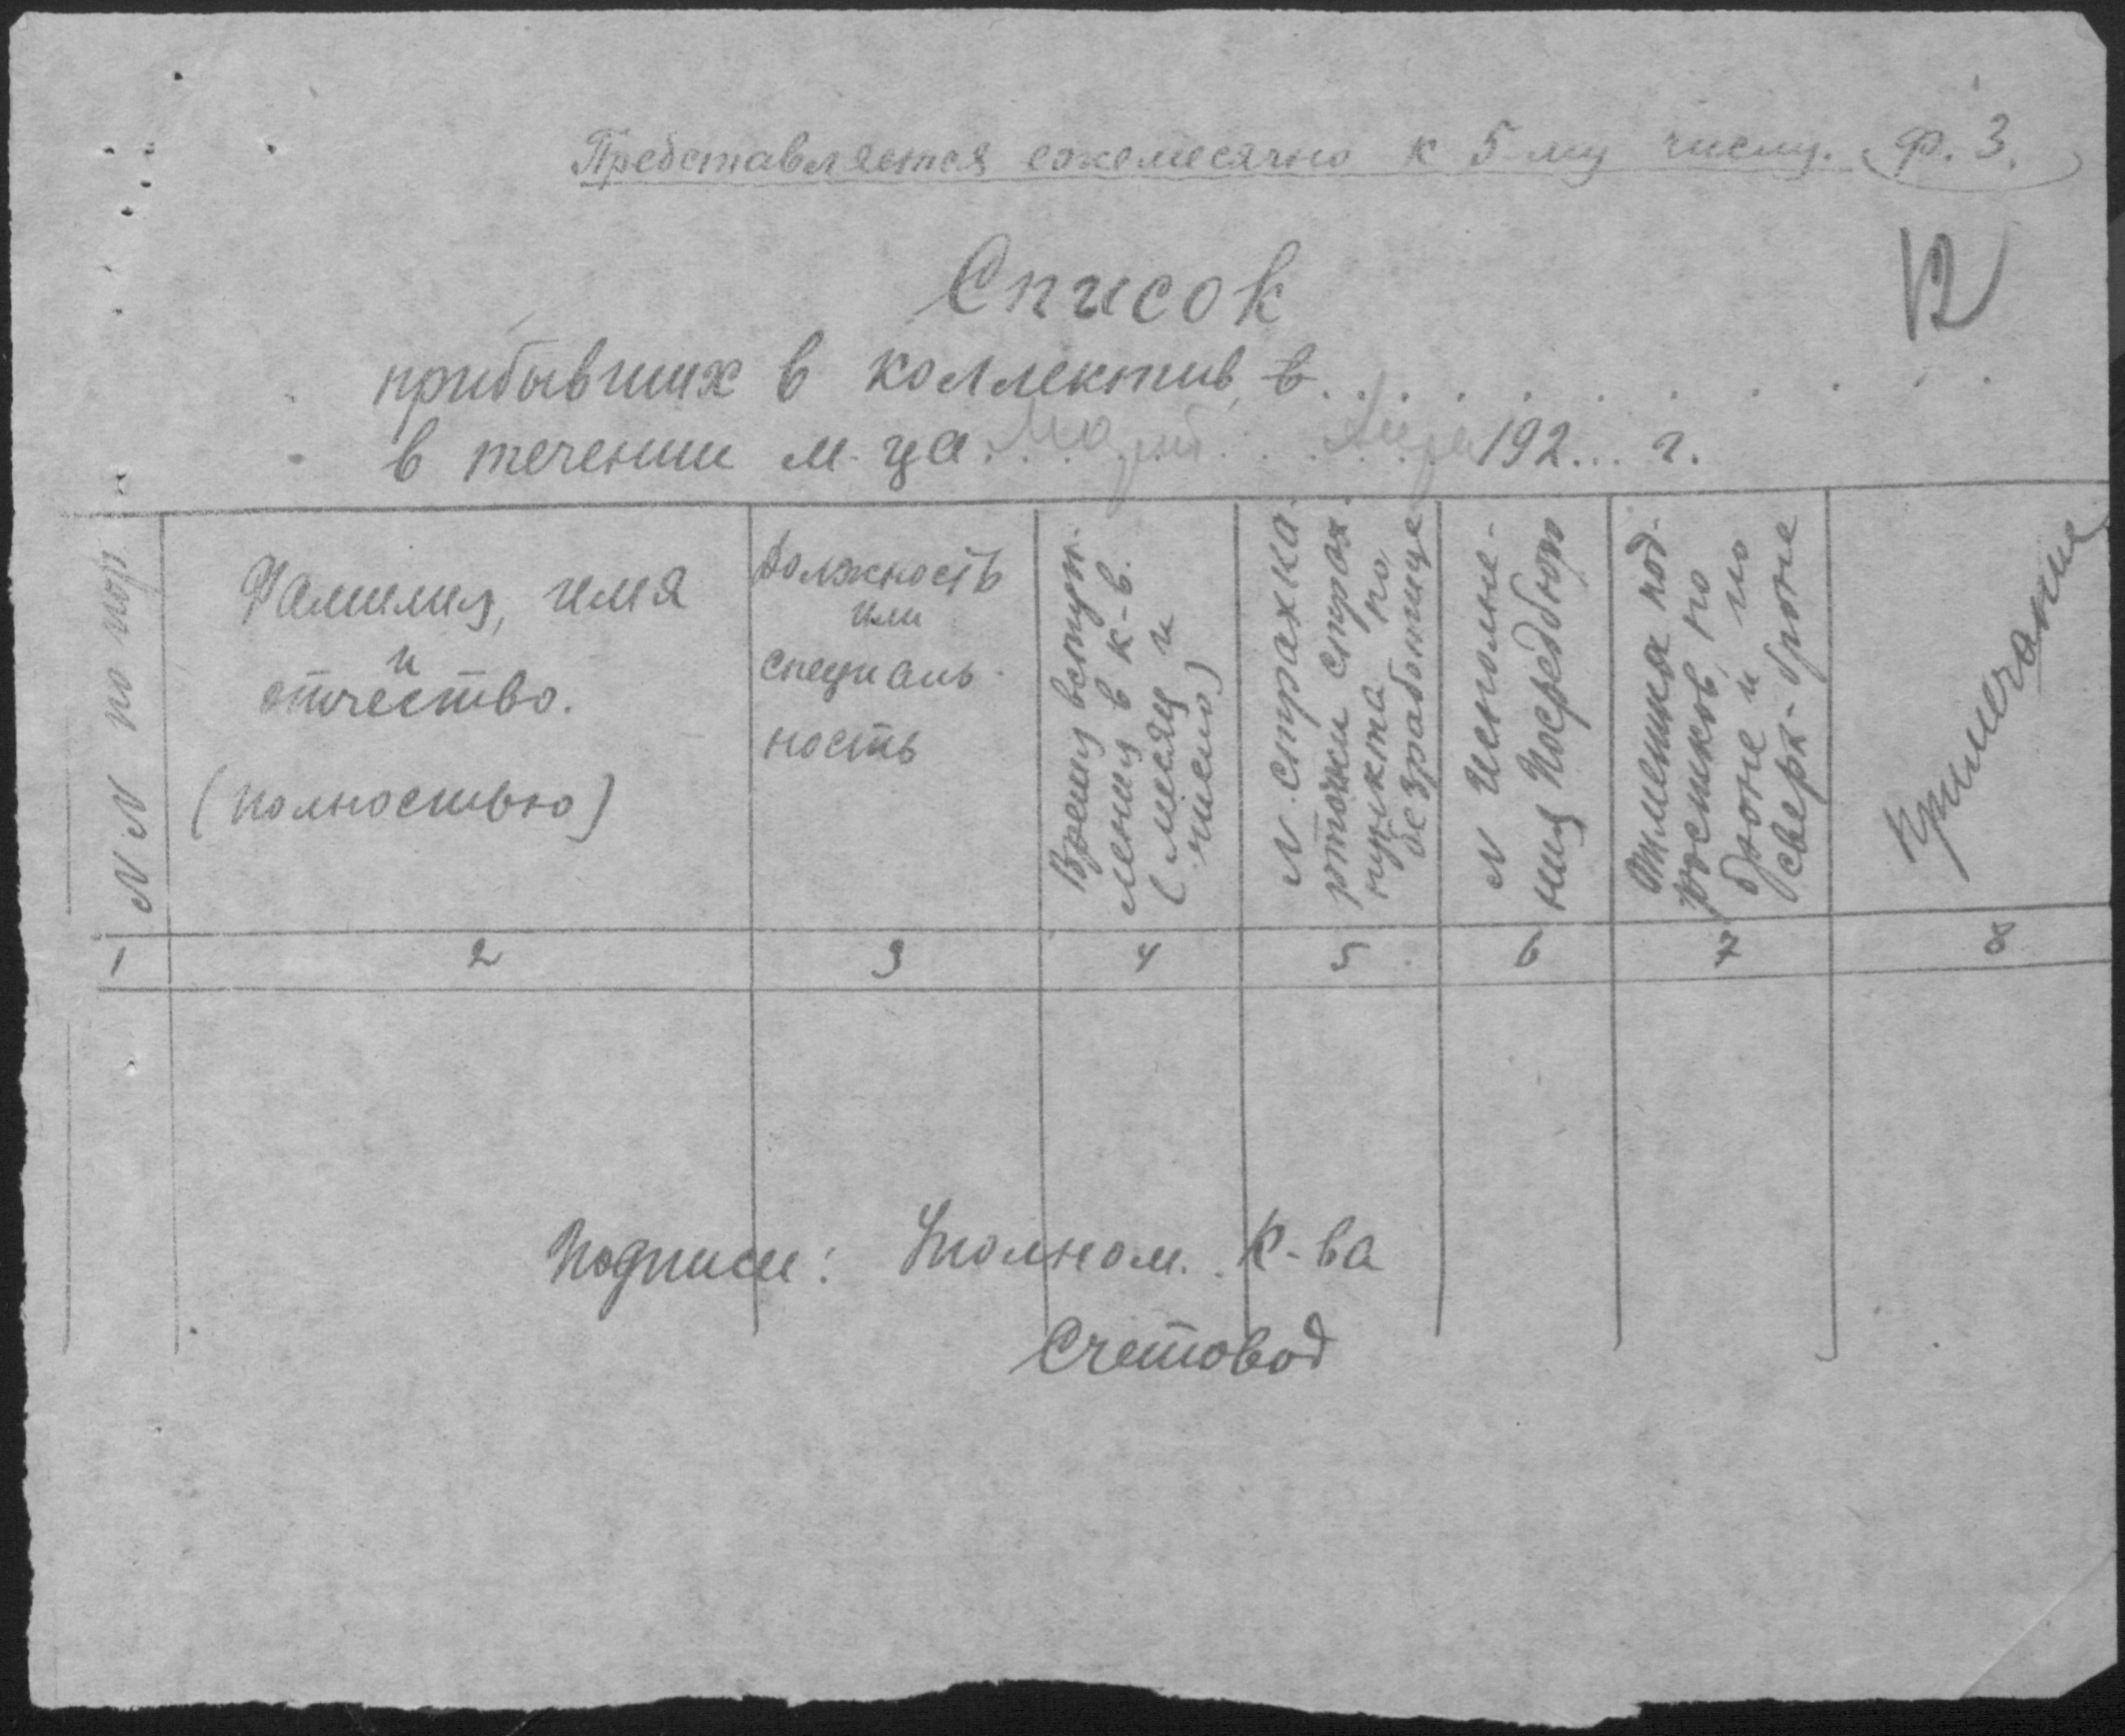 Представляется ежемесячно к 5-му числу. Ф. 3.
12
Список
прибывших в коллектив, в . . . . . . . . . .
в течении м-ца . . Март . . . . . 192... г.
N N по пор.
Фамилия, имя
и
отчество.
(полностью)
Должность
или
специаль-
ность
Время вступ-
ления в к-в.
(месяц и
число)
N страхка-
рточки страх.
пункта по
безработице
N Исполне-
ния Посредбюро
Отметка под-
ростков, по
броне и по
сверх-броне
Примечание
1 2 3 4 5 6 7 8
Подписи: Уполном. К-ва
Счетовод